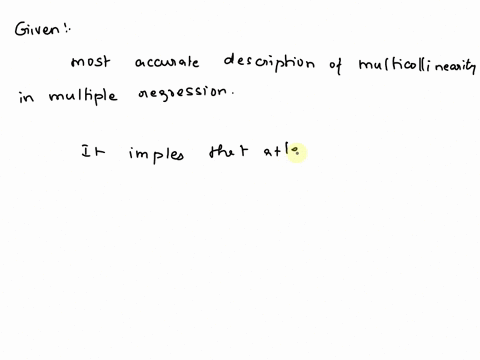 Given:-
most accurate description of multicollinearity
in multiple regression.
It imples that atle